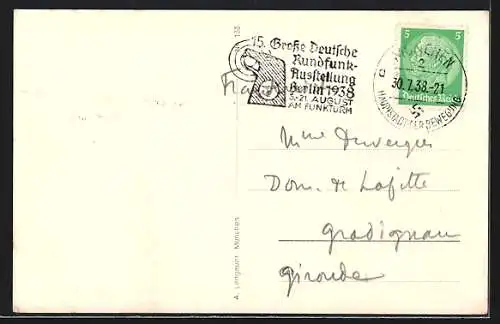 15. Große Deutsche
Rundfunk-
Ausstellung
Berlin 1938
5.-21. AUGUST
AM FUNKTURM
MÜNCHEN
2
30.7.38.-21
HAUPTSTADT DER BEWEGUNG
5 5
Deutsches Reich
Mme Duvergier
Dom. de Lafitte
Gradignan
Gironde
A. Lengauer, München